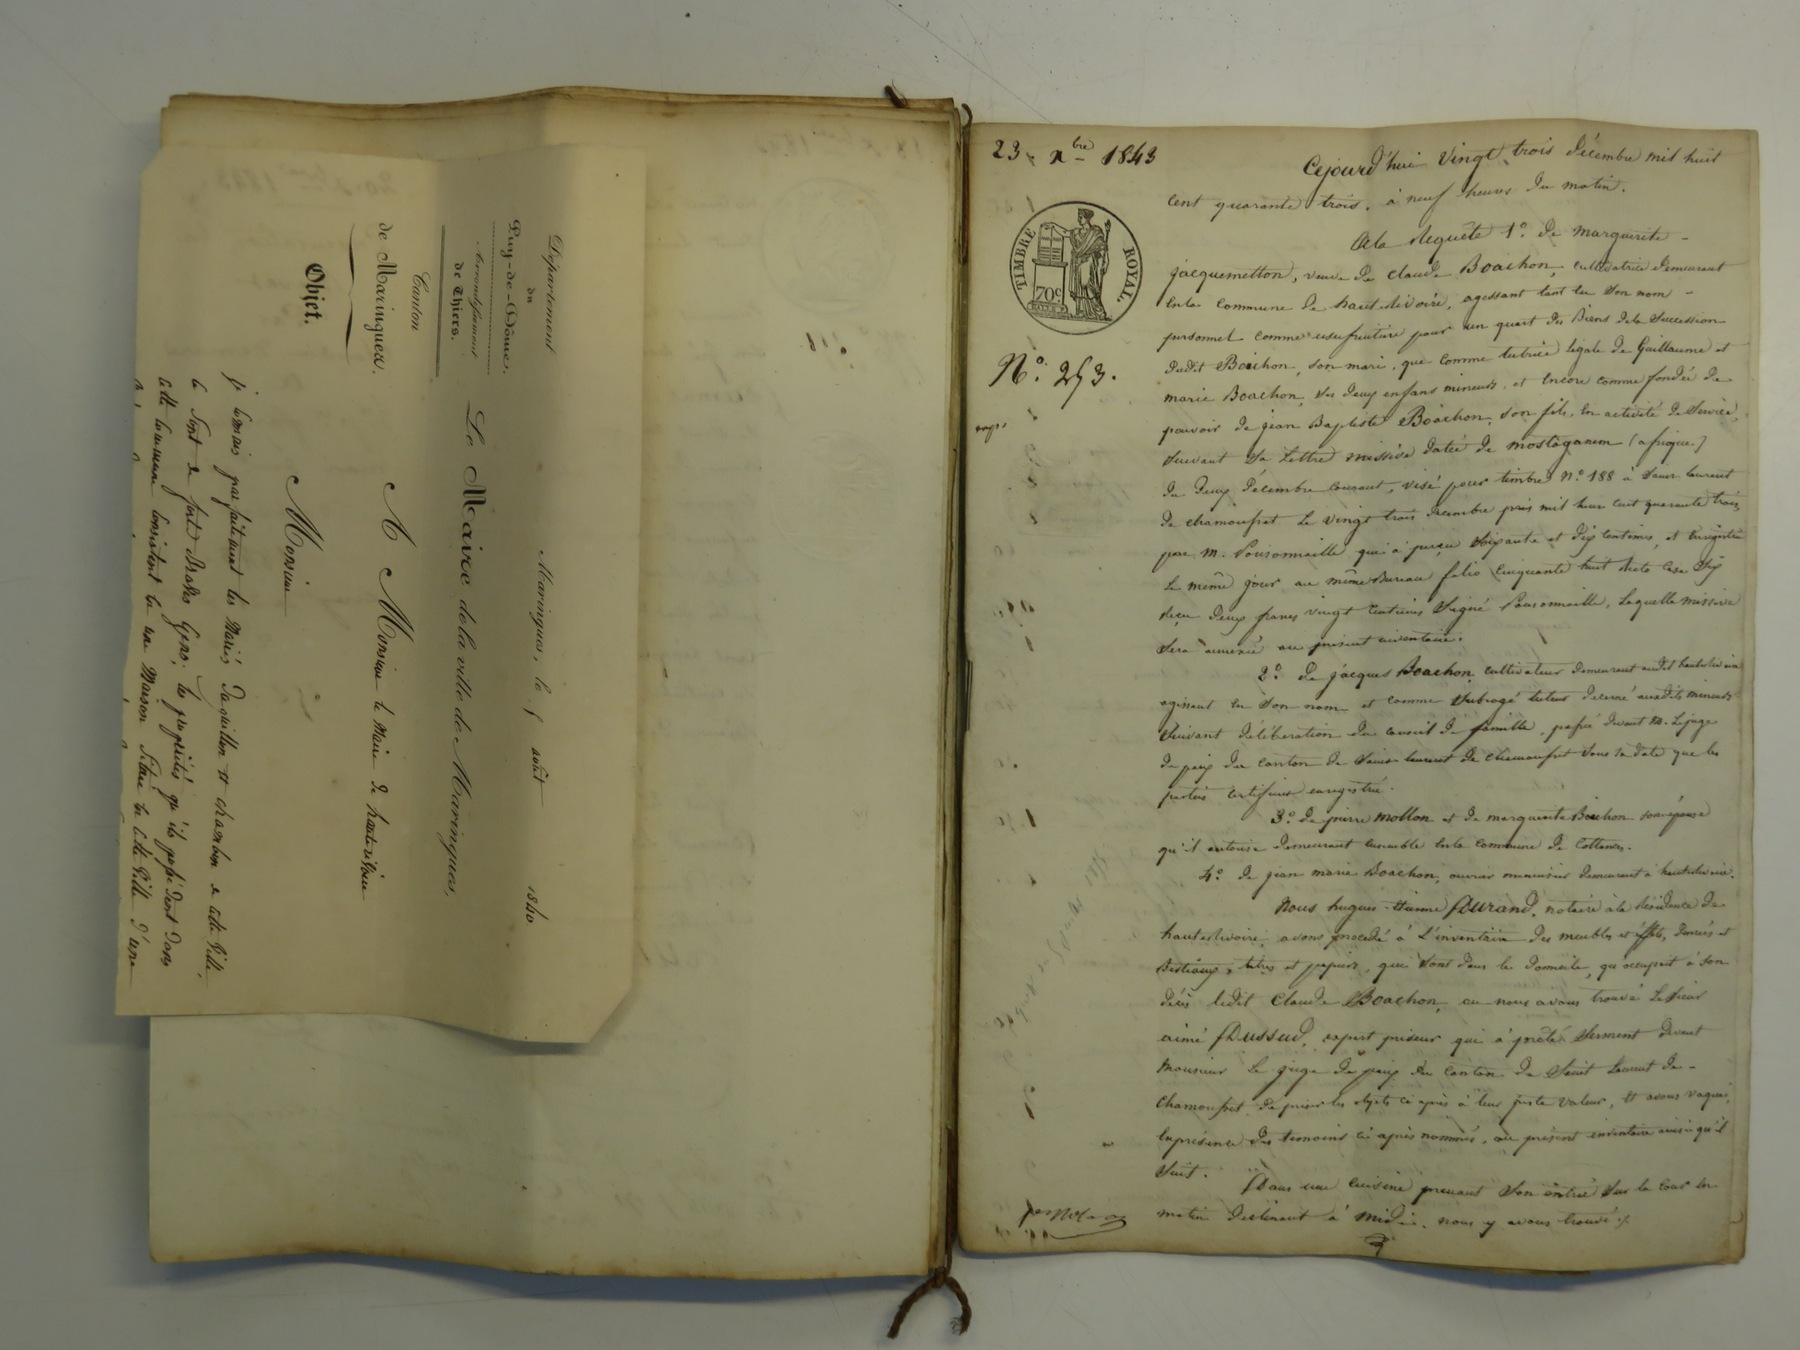 Département
du
Puy-de-Dôme.
Arrondissement
de Thiers.
Canton
de Maringues.
Objet.
Maringues, le 5 août 1840
Le Maire de la ville de Maringues,
A Monsieur le Maire de haute rivoire
Monsieur
je connais parfaitement les Mariés Daguillon et chambon de cette Ville,
ce sont de fort braves Gens; les propriétés qu'ils possèdent dans
cette commune consistent en une Maison située en cette Ville d'une
23 xbre 1843
TIMBRE ROYAL
70c
No. 253.
exp.
Cejourd'hui vingt trois décembre mil huit
cent quarante trois, à neuf heures du matin.
A la Requête 1o. de marguerite
jacquemetton, veuve de claude Boachon, cultivatrice demeurant
en la commune de hauterivoire, agissant tant en son nom
personnel comme usufruitiere pour un quart des Biens de la Succession
dudit Boachon, son mari, que comme tutrice légale de Guillaume et
marie Boachon, ses deux enfans mineurs, et encore comme fondée de
pouvoir de jean Baptiste Boachon, son fils, en activité de Service,
suivant sa Lettre missive datée de mostaganem (afrique)
du deux décembre courant, visé pour timbre No. 188 à Saint Laurent
de chamousset le vingt trois décembre mil huit cent quarante trois
par M. qui à perçu soixante et dix centimes, et enregistrée
le même jour au même Bureau folio cinquante huit Recto case dix
Reçu deux francs vingt centimes Signé, Laquelle missive
sera annexée au présent inventaire.
2o. de jacques Boachon, cultivateur demeurant audit hauterivoire
agissant en son nom et comme Subrogé tuteur décerné auxdits mineurs
suivant délibération du conseil de famille, passé devant M. Le juge
de paix du canton de Saint Laurent de chamousset sous sa date que les
parties certifient enregistré.
3o. de pierre mollon et de marguerite Boachon son épouse
qu'il autorise demeurant ensemble en la commune de Cottance.
4o. de jean marie Boachon, ouvrier menuisier demeurant à hauterivoire.
Nous hugues étienne Durand, notaire à la Résidence de
hauterivoire, avons procédé à L'inventaire des meubles et effets, denrées et
Bestiaux, titres et papiers, qui sont dans le domicile, qu'occupait à son
décès ledit Claude Boachon, ou nous avons trouvé Le sieur
aimé Dussud, expert priseur qui à prêté Serment devant
Monsieur le juge de paix du canton de Saint Laurent de
chamousset de priser les objets ci après à leur juste valeur, et avons vaqué,
en présence des temoins ci après nommés, au présent inventaire ainsi qu'il
suit.
Dans une cuisine prenant son entrée sur la cour en
matin nous y avons trouvé :/.